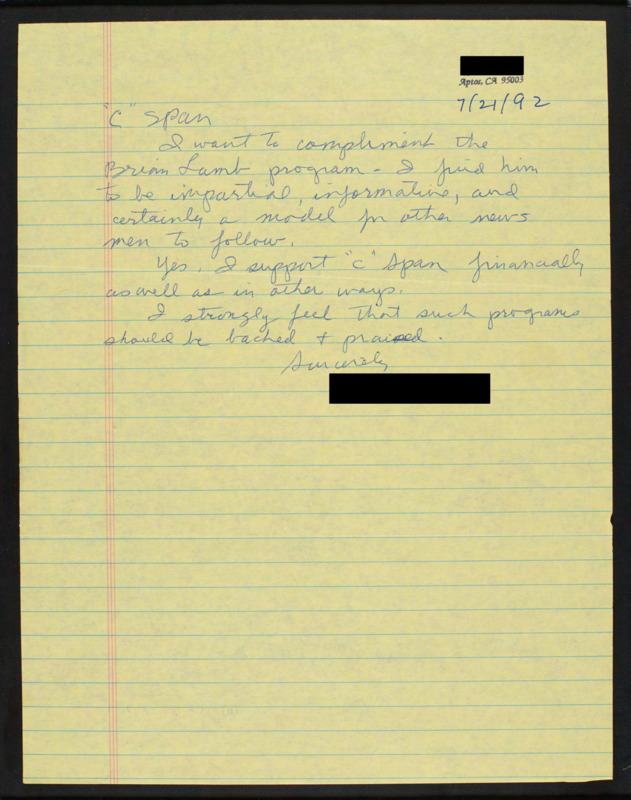 Aptos, CA 95003
7/21/92
"C" SPAN
I want to compliment the
Brian Lamb program - I find him
to be impartial, informative, and
certainly a model for other news
men to follow.
Yes, I support "C" Span financially
as well as in other ways.
I strongly feel that such programs
should be backed & praised.
Sincerely